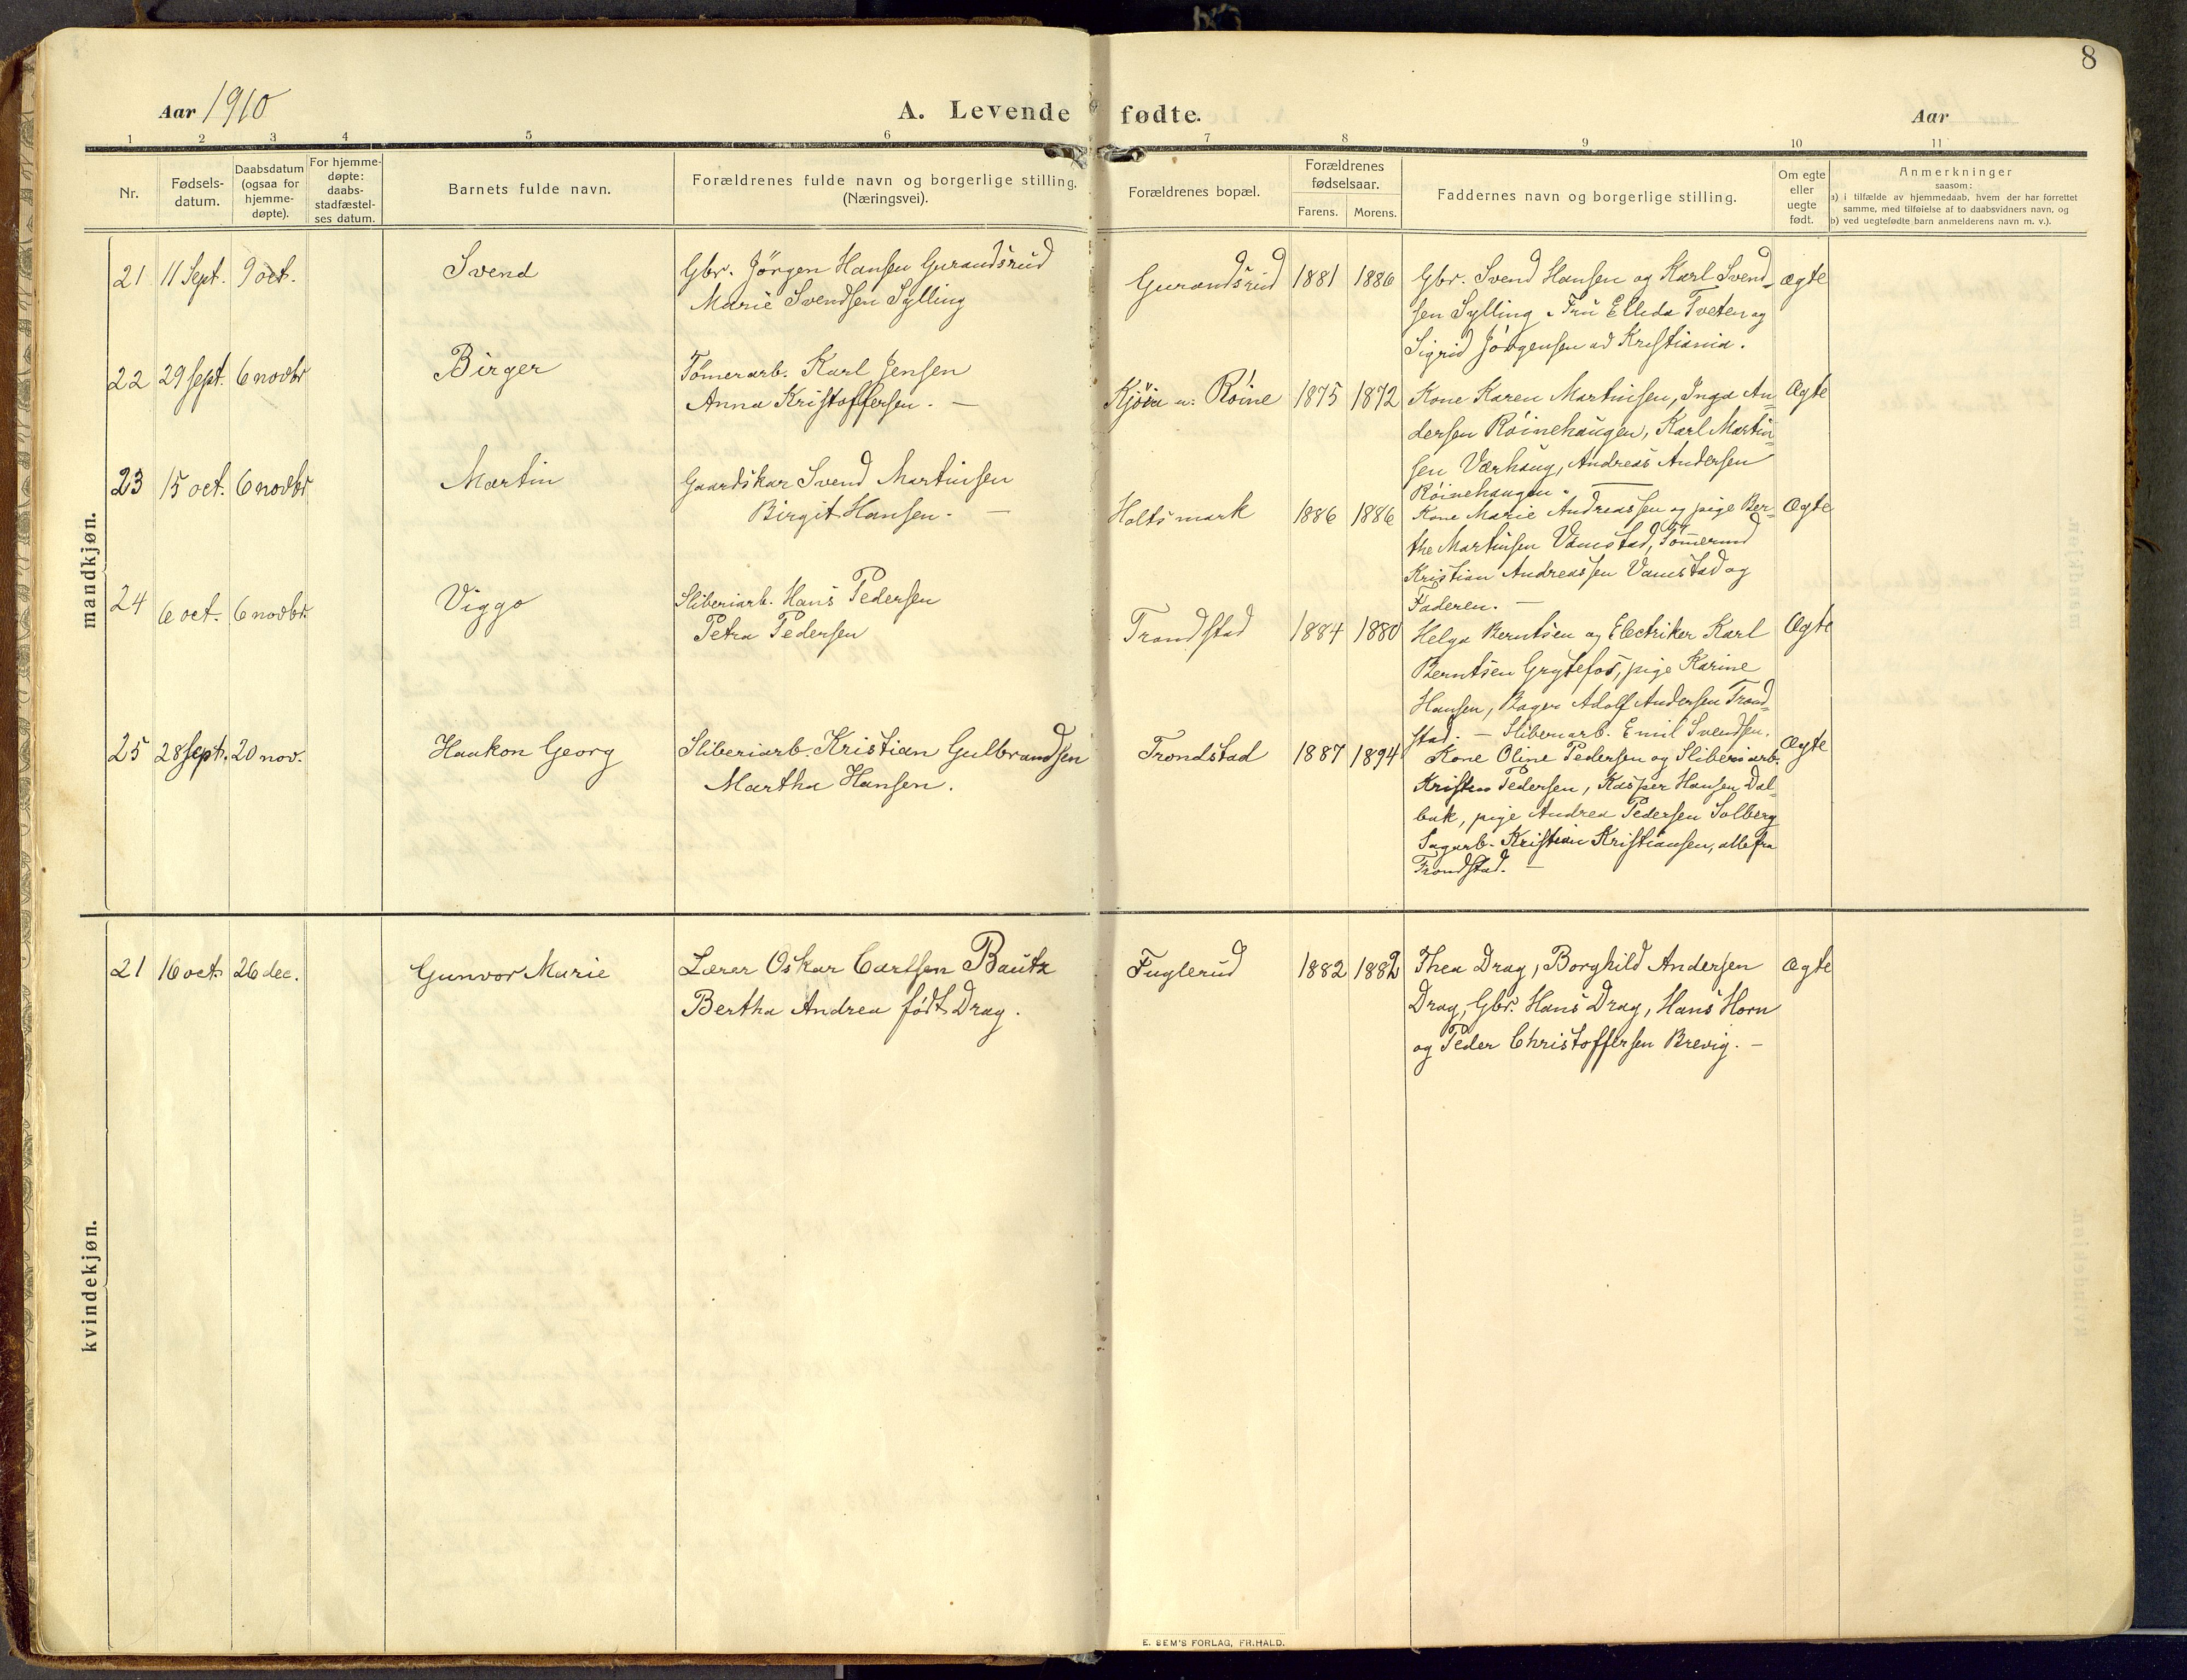 8
Aar 1910
A. Levende fødte.
Aar
1 2 3 4 5 6 7 8 9 10 11
Nr.
Fødsels-
datum.
Daabsdatum
(ogsaa for
hjemme-
døpte).
For hjemme-
døpte:
daabs-
stadfæstel-
ses datum.
Barnets fulde navn.
Forældrenes fulde navn og borgerlige stilling.
(Næringsvei).
Forældrenes bopæl.
Forældrenes
fødselsaar.
Farens. Morens.
Faddernes navn og borgerlige stilling.
Om egte
eller
uegte
født.
Anmerkninger
saasom:
a) i tilfælde av hjemmedaab, hvem der har forrettet
samme, med tilføielse af to daabsvidners navn, og
b) ved uegtefødte barn anmelderens navn m. v.).
mandkjøn.
21 11 Sept. 9 oct. Svend
Gbr. Jörgen Hansen Gurandsrud
Marie Svendsen Sylling
Gurandsrud 1881 1886
Gbr. Svend Hansen og Karl Svend-
sen Sylling. Fru Elleda Tveten og
Sigrid Jörgensen ad Kristiania.
ægte
22 29 sept. 6 novbr Birger
Tömerarb. Karl Jensen
Anna Kristoffersen. —
Röine 1875 1872
Kone Karen Martinsen, Inga An-
dersen Röinehaugen, Karl Martin-
sen Værhaug, Andreas Andersen
Röinehaugen. —
Ægte
23 15 oct. 6 novbr Martin
Gaardskar Svend Martinsen
Birgit Hansen. —
Holtsmark 1886 1886
Kone Marie Andreassen og pige Ber-
the Martinsen Vamstad, Tömermd
Kristian Andreassen Vamstad og
Faderen. —
Ægte
24 6 oct. 6 novbr. Viggo
Sliberiarb. Hans Pedersen
Petra Pedersen
Trondstad 1884 1880
Helga Berntsen og Electriker Karl
Berntsen Grytefos, pige Karine
Hansen, Bager Adolf Andersen Trond-
stad. — Sliberiarb. Emil Svendsen.
Ægte
25 28 sept. 20 nov. Haakon Georg
Sliberiarb. Kristian Gulbrandsen
Martha Hansen.
Trondstad 1887 1894
Kone Oline Pedersen og Sliberiarb.
Pedersen, Kasper Hansen Dal-
bak, pige Andrea Pedersen Solberg
Sagarb. Kristian Kristiansen, alle fra
Trondstad. —
Ægte
kvindekjøn.
21 16 oct. 26 dec. Gunvor Marie
Lærer Oskar Carlsen Bautz
Bertha Andrea född Drag.
Fuglerud 1882 1882
Thea Drag, Borghild Andersen
Drag, Gbr. Hans Drag, Hans Horn
og Peder Christoffersen Brevig. —
Ægte
E. SEM'S FORLAG, FR.HALD.